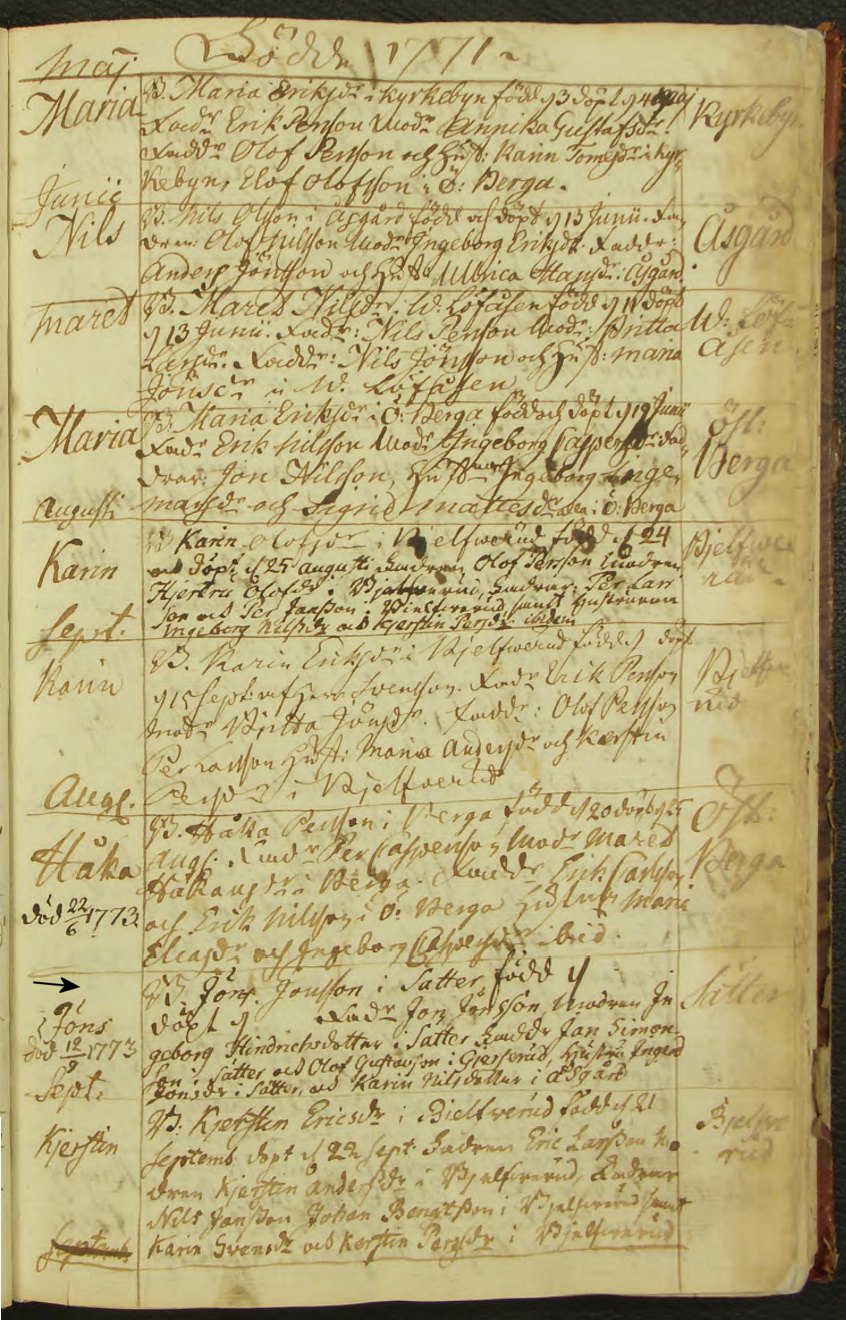 Födde 1771
Maj
Maria
B. Maria Eriksdr i Kyrkebyn född d 3 döpt d 4 Maj
Fadr Erik Person Modr Annika Gustafsdr.
Faddr Olof Person och Hust: Karin Tomesdr i Kyr-
kebyn, Elof Olofsson i Ö: Berga.
Kyrkebyn
Junii
Nils
B. Nils Olsson i Åsgård född och döpt d 13 Junii. Fa-
dren Olof Nilsson Modr Ingeborg Eriksdr. Faddr:
Anders Jönsson och Hust: Ullrica Hansdr: Åsgård.
Åsgård
Maret
B. Maret Nilsdr. W. Löfåsen född d 11 döpt
d 13 Junii. Fadr: Nils Person Modr: Britta
Larsdr. Faddr: Nils Jönsson och Hust: Maria
Jönsdr i W. Löfåsen
W: Löf-
åsen
Maria
B. Maria Eriksdr i Ö: Berga född och döpt d 19 Junii
Fadr Erik Nilsson Modr Ingeborg Caspersdr: Fad-
drar: Jon Nilsson, Hust Ingeborg Inge-
marsdr och Sigrid Mattesdr i Ö: Berga
Öst:
Berga
Augusti
Karin
B Karin Olofsdr i Bjelfwerud född d 24
och döpt d 25 augusti Fadren Olof Persson Modren
Hjertru Olofsdr i Bjelfwerud, Fadrar Per Lars
Son och Per Jansson i Bielfwerud, samt Hustrurna
Ingeborg Nilsdr och Kjerstin Persdr ibidem
Bjelfwe-
rud
Sept.
Karin
B. Karin Eriksdr i Bjelfwerud född d döpt
d 15 Sept: af Herr Svensson. Fadr Erik Person
Modr Britta Jönsdr. Faddr: Olof Persson
Per Larsson Hust: Maria Andersdr och Kerstin
Persdr i Bjelfverud
Bjelfve
rud
Aug.
Håka
död 22/6 1773
B. Håka Persson i Berga född d 20 döpt d 25
Aug. Fadr Per Casperson Modr Maret
Håkansdr i Berga. Faddr Erik Carlsson
och Erik Nilsson i Ö: Berga Hustrur Maria
Eliasdr och Ingeborg Caspersdr ibid.
Öst:
Berga
Jöns
död 12/9 1773
B Jöns Jonsson i Sätter, född d
döpt d Fadr Jon Jönsson, Modren In
geborg Hindrichsdotter i Sätter Faddr Jan Simon-
Son i Sätter och Olof Gustavson i Gierserud, Hustru Ingerd
Jonsdr i Sätter, och Karin Nilsdotter i Åsgård
Sätter
Sept:
Kjerstin
B. Kjerstin Ericsdr i Bielfverud född d 21
Septemb döpt d 22 Sept Fadren Eric Larsson Mo
dren Kjerstin Andersdr i Bjelfwerud, Fadrar
Nils Jansson Johan Bengtsson i Bjelfwerud samt
Karin Svensdr och Kerstin Persdr i Bjelfwerud
Bjelfve
rud
Septemb